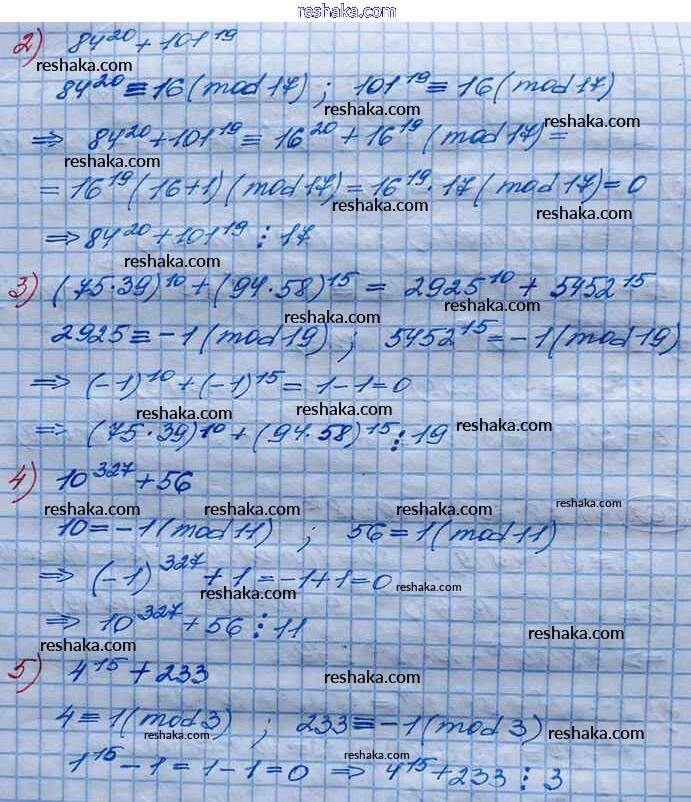 www.reshaka.com
2) 84²⁰ + 101¹⁹
reshaka.com reshaka.com
84²⁰ ≡ 16 (mod 17) ; 101¹⁹ ≡ 16 (mod 17)
reshaka.com
⇒ 84²⁰ + 101¹⁹ ≡ 16²⁰ + 16¹⁹ (mod 17) =
reshaka.com reshaka.com
= 16¹⁹ (16+1) (mod 17) = 16¹⁹ · 17 (mod 17) = 0
reshaka.com reshaka.com
⇒ 84²⁰ + 101¹⁹ ⋮ 17
reshaka.com
3) (75·39)¹⁰ + (94·58)¹⁵ = 2925¹⁰ + 5452¹⁵
reshaka.com reshaka.com
2925 ≡ -1 (mod 19) ; 5452¹⁵ = -1 (mod 19)
reshaka.com
⇒ (-1)¹⁰ + (-1)¹⁵ = 1-1=0
reshaka.com reshaka.com
⇒ (75·39)¹⁰ + (94·58)¹⁵ ⋮ 19
reshaka.com
4) 10³²⁷ + 56
reshaka.com reshaka.com reshaka.com reshaka.com
10 = -1 (mod 11) ; 56 = 1 (mod 11)
reshaka.com
⇒ (-1)³²⁷ + 1 = -1+1=0
reshaka.com reshaka.com
⇒ 10³²⁷ + 56 ⋮ 11
reshaka.com reshaka.com
5) 4¹⁵ + 233
reshaka.com
4 ≡ 1 (mod 3) ; 233 ≡ -1 (mod 3)
reshaka.com reshaka.com
reshaka.com
1¹⁵ - 1 = 1-1=0 ⇒ 4¹⁵ + 233 ⋮ 3
reshaka.com reshaka.com